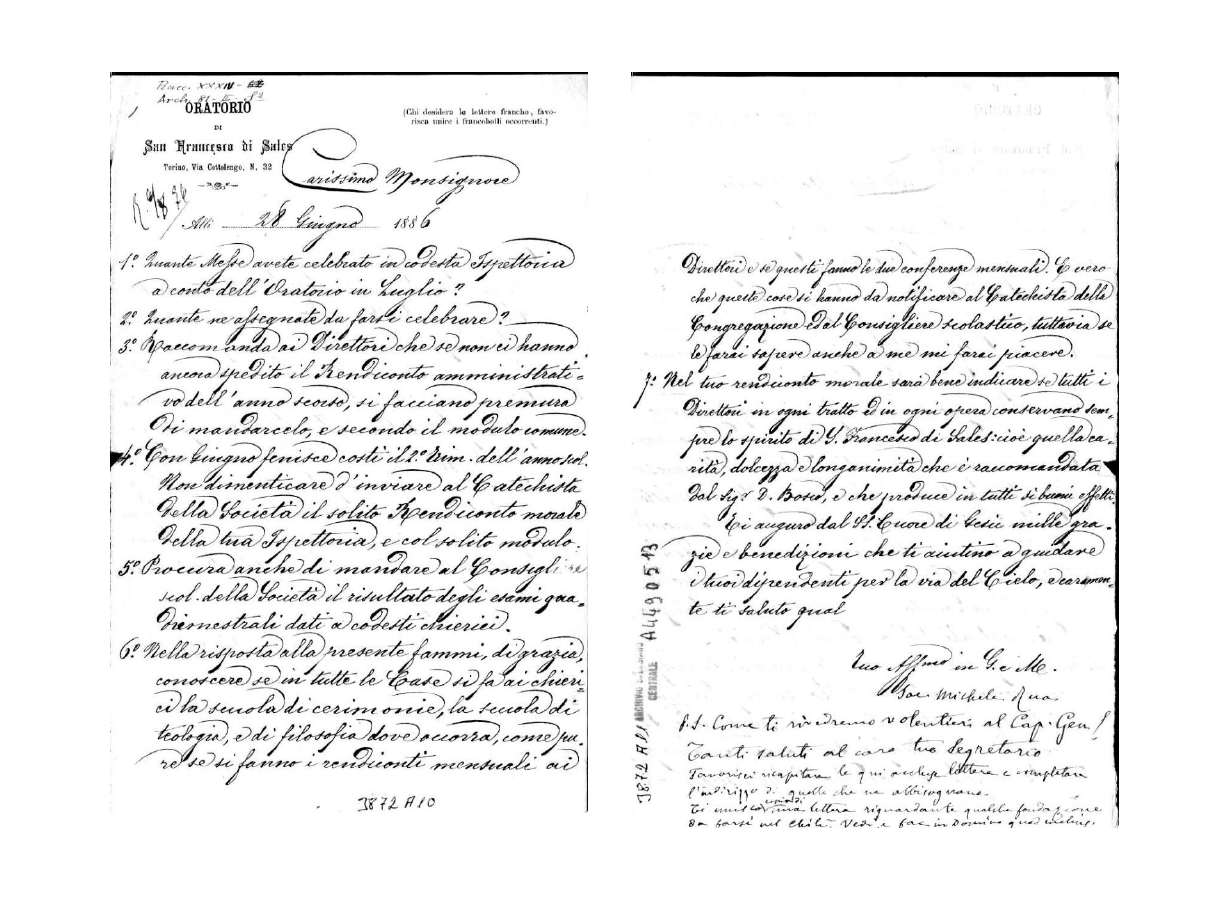 Arch.
ORATORIO
DI
San Francesco di Sales
Torino, Via Cottolengo, N. 32
(Chi desidera le lettere franche, favo-
risca unire i francobolli occorrenti.)
Carissimo Monsignore
Alli 28 Giugno 1886
1º Quante Messe avete celebrato in codesta Ispettoria
a conto dell'Oratorio in Luglio?
2º Quante ne assegnate da farsi celebrare?
3º Raccomanda ai Direttori che se non ci hanno
ancora spedito il Rendiconto amministrati-
vo dell'anno scorso, si facciano premura
di mandarcelo, e secondo il modulo comune.
4º Con Giugno fenisce costì il 2º Trim. dell'anno scol.
Non dimenticare d'inviare al Catechista
della Società il solito Rendiconto morale
della tua Ispettoria, e col solito modulo.
5º Procura anche di mandare al Consigliere
scol. della Società il risultato degli esami qua-
drimestrali dati a codesti chierici.
6º Nella risposta alla presente fammi, di grazia,
conoscere se in tutte le Case si fa ai chieri-
ci la scuola di cerimonie, la scuola di
teologia, e di filosofia dove occorra, come pu-
re se si fanno i rendiconti mensuali ai
3872 A10
Direttori e se questi fanno le due conferenze mensuali. È vero
che queste cose si hanno da notificare al Catechista della
Congregazione ed al Consigliere scolastico, tuttavia se
le farai sapere anche a me mi farai piacere.
7º Nel tuo rendiconto morale sarà bene indicare se tutti i
Direttori in ogni tratto ed in ogni opera conservano sem-
pre lo spirito di S. Francesco di Sales: cioè quella ca-
rità, dolcezza e longanimità che è raccomandata
dal Sigr D. Bosco, e che produce in tutti sì buoni effetti.
Ti auguro dal SS. Cuore di Gesù mille gra-
zie e benedizioni che ti aiutino a guidare
i tuoi dipendenti per la via del Cielo, e caramen-
te ti saluto qual
Tuo Affmo in G. e M.
Sac. Michele Rua
P.S. Come ti rivedremo volentieri al Cap. Gen.!
Tanti saluti al caro tuo Segretario.
Favorisci ricapitare le qui accluse lettere e completare
l'indirizzo di quelle che ne abbisognano.
Ti unisco una lettera riguardante qualche fondazione
da farsi nel Chilì. Vedi e fac in Domino quod melius.
3872 A11
ARCHIVIO SALESIANO
CENTRALE
A4490513